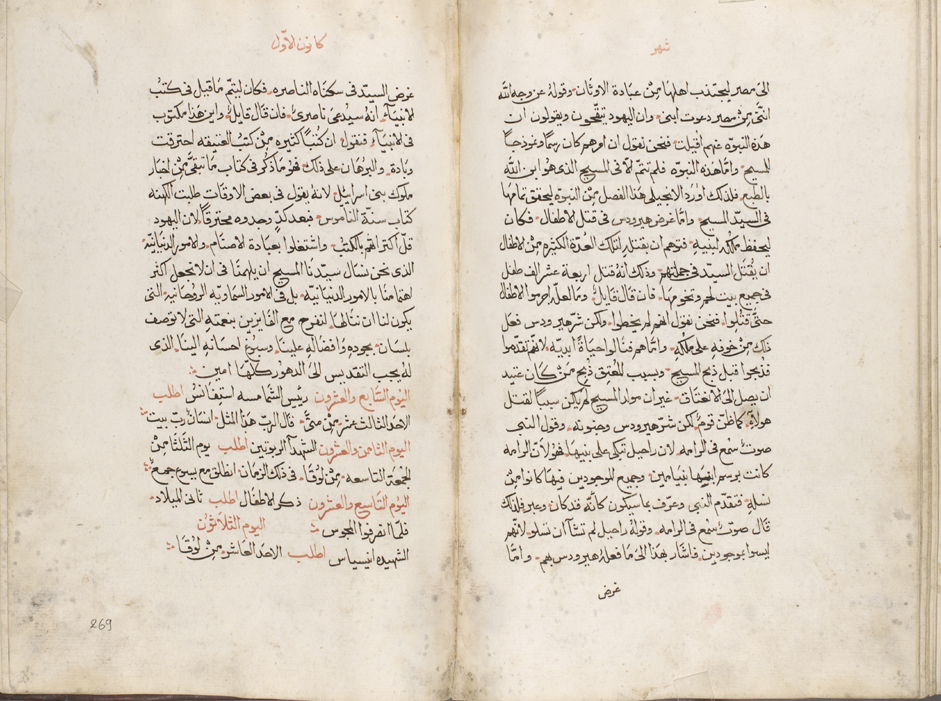 شهر
الى مصر ليجتذب اهلها مِنْ عبادة الاوثان وقوله عن وجه الله
اننى مِنْ مصر دعوت ابنى وان اليهود يتقحون ويقولون ان
هذه النبوه عنهم اقيلت فنحن نقول ان اورهم كان رسمًا ونموذجًا
للمسيح وامّا هذه النبوه فلم تتم الّا فى المسيح الذى هو ابن الله
بالطبع فلذلك اورد الانجيلى هذا الفصل مِنَ النبوه ليحقق تمامها
فى السيّد المسيح وامّا غرض هيرودس فى قتل الاطفال فكان
ليحفظ ملكه لبنيه فتوهم ان بقتله لتلك العدّة الكثيره مِنَ الاطفال
ان يقتل السيّد فى جملتهم وذلك انّهُ قتل اربعة عشر الف طفل
فى جميع بيت لحم وتخومها فان قال قايل وما العلّه اجرموا الاطفال
حتّى قتلوا فنحن نقول انهم لم يخطوا ولكن شرّ هيرودس فعل
ذلك مِنْ خوفه على ملكه وامّا هم فنالوا حياةً ابديّه لانّهم تقدموا
فذبحوا قبل ذبح المسيح وبسبب المعتِق ذبح مَنْ كان عتيد
ان يصل الى الانعتاق غير ان مولد المسيح لم يكن سببًا لقتل
هولآء كما ظنّ قومٌ لكن شرّ هيرودس وجنونه وقول النبى
صوتٌ سُمع فى الرامه لان راحيل تبكى على بنيها فهو لانّ الرامه
كانت برسم ابنها بنيامين وجميع الموجودين فيها كانوا من
نسله فتقدّم النبى وعرّف بما سيكون كانّه قد كان وعبر فلذلك
قال صوتٌ سُمع فى الرامه وقوله راحيل لم تشآ ان تسلو لانّهم
ليسوا بموجودين فاشار بهذا الى ما فعله هيرودس بهم وامّا
غرض
كانون الاوّل
غرض السيّد فى سكناه الناصره فكان ليتمّ ما قيل فى كتب
الانبيآء انهُ سيُدعى ناصرى فان قال قايل واين هذا مكتوب
فى الانبيآء فنقول ان كتبًا كثيره مِنْ كتب العتيقه احترقت
وبادة والبرهان على ذلك هُوَ ما ذكر فى كتاب ما تبقى مِنْ اخبار
ملوك بنى اسرائيل لانهُ يقول فى بعض الاوقات طلبت الكهنه
كتاب سنّة الناموس فبعد كدٍّ وجدوه محترقًا لان اليهود
قلّ اكتراثهم بالكتب واشتغلوا بعبادة الاصنام والامور الدنيانيّه
الذى نحن نسال سيّدنا المسيح ان يلهمنا فى ان لا نجعل اكثر
اهتمامنا بالامور الدنيانيّه بل فى الامور السماويّه الروحانيّه التى
يكون لنا ان ننالها لنفرح مع الفايزين بنعمته التى لا توصف
بلسان بجوده وافضاله علينا وسبوغ احسانه الينا الذى
له يجب التقديس الى الدهور كلها امين
اليوم السابع والعشرون رئيس الشمامسه استفانُسْ اطلب
الاحد الثالث عشر مِنْ متى قال الرب هذا المثل انسان ربّ بيت
اليوم الثامن والعشرون الشهدآ الربوتين اطلب يوم الثلثا مِنَ
الجمعة التاسعه مِنْ لوقا فى ذلك الزمان انطلق مع يسوع جمع
اليوم التاسع والعشرون ذكر الاطفال اطلب ثانى الميلاد
فلما انصرفوا المجوس اليوم الثلاثون
الشهيده انيسياس اطلب الاحد العاشر مِنْ لوقا
269